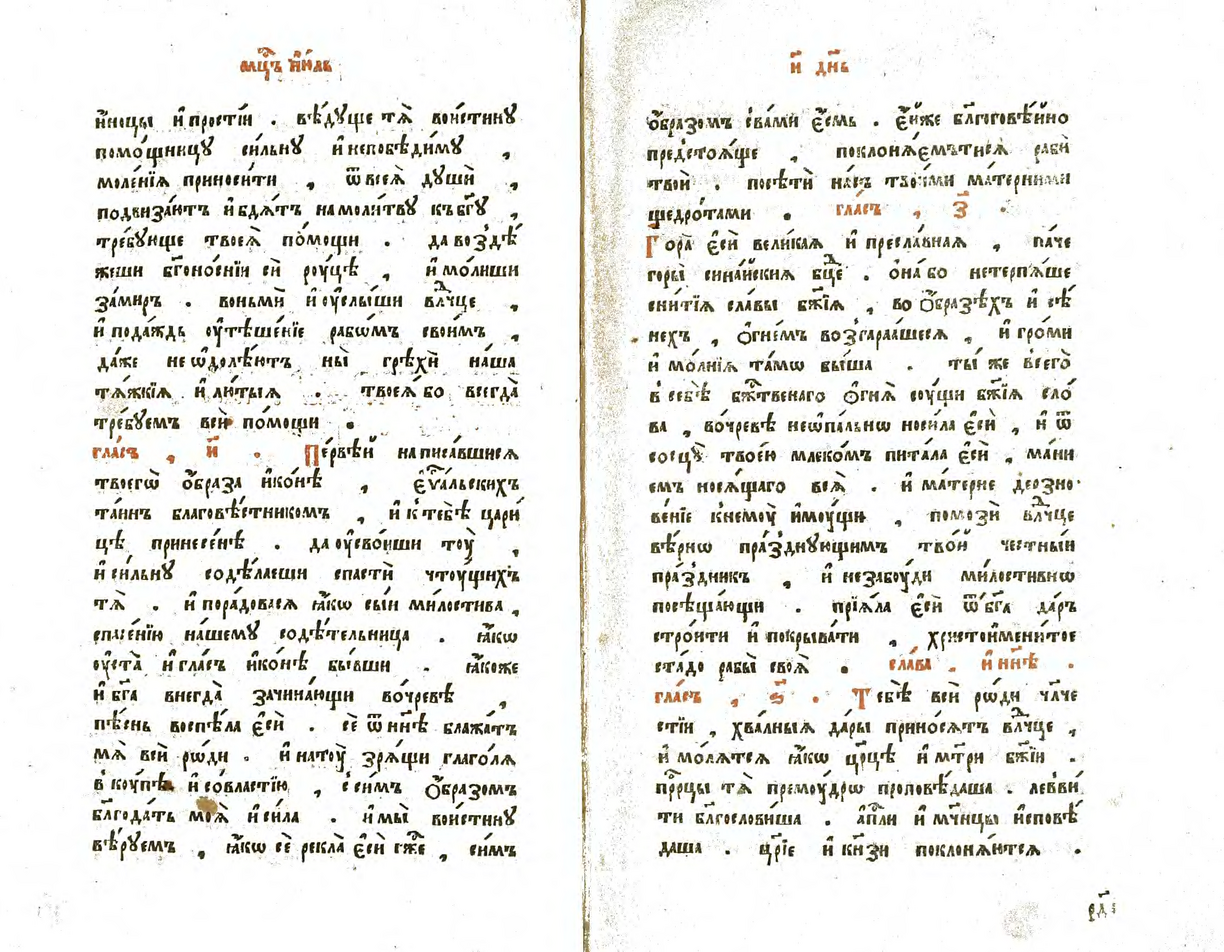 мⷭ҇цъ і҆ю́ль
и҆́ноцы и҆прості́и . вѣ́дꙋще тѧ̀ вои́стинꙋ
помо́щницꙋ си́льнꙋ и҆непобѣди́мꙋ ,
моле́нїѧ приноси́ти , ѿ всеѧ̀ дꙋшѝ ,
подвиза́ютъ и҆бдѧ́тъ намоли́твꙋ къбг҃ꙋ ,
тре́бꙋюще твоеѧ̀ по́мощи . даво з̾дѣ́
жеши бг҃оно́снїи сѝ рꙋ́цѣ , и҆мо́лиши
за́миръ . воньмѝ и҆ᲂу҆слы́ши влⷣчце ,
и҆пода́ждь ᲂу҆тѣше́нїе рабѡ́мъ свои́мъ ,
да́же неѡ҆долѣ́ютъ ны̀ грѣхѝ на́ша
тѧ́жкїѧ и҆лю́тыѧ . твоеѧ́бо всегда̀
тре́бꙋемъ всѝ по́мощи .
гла́съ , и҃ . Пе́рвѣй написа́вшисѧ
твоегѡ̀ ѻ҆́браза и҆ко́нѣ , є҆ѵⷢ҇альскихъ
та́инъ благовѣ́стникомъ , и҆ктебѣ̀ цари́
цѣ принесе́нѣ . даᲂу҆сво́иши тоу̀ ,
и҆си́льнꙋ содѣ́лаеши спастѝ чтоу́щихъ
тѧ̀ . и҆пора́доваса ꙗ҆́кѡ сы́и ми́лостива ,
спасе́нїю на́шемꙋ содѣ́тельница . ꙗ҆́кѡ
ᲂу҆ста̀ и҆гла́съ и҆ко́нѣ бы́вши . ꙗ҆́коже
и҆ бг҃а внегда̀ зачина́ющи во́чревѣ ,
пѣ́снь воспѣ́ла є҆сѝ . сѐ ѿнн҃ѣ блажа́тъ
мѧ̀ всѝ ро́ди . и҆натоу̀ зрѧ́щи глаго́лѧ
вкоу́пѣ и҆совла́стїю , с си́мъ ѻ҆́бразомъ
блг҃ода́ть моѧ̀ и҆си́ла . и҆мы̀ вои́стинꙋ
вѣ́рꙋемъ , ꙗ҆́кѡ сѐ рекла̀ є҆сѝ гж҃е , си́мъ
и҃ дн҃ь
ѻ҆́бразомъ сва́ми є҆́смь . є҆́йже бл҃гоговѣ́йно
предстоѧ́ще , поклонѧ́емътисѧ рабѝ
твоѝ . посѣтѝ на́съ твои́ми ма́терними
щедро́тами . гла́съ , з҃ .
Гора̀ є҆сѝ вели́каѧ и҆ пресла́внаѧ , па́че
горы̀ сина́йскиѧ бц҃е . ѻ҆на́бо нетерпѧ́ше
сни́тїѧ сла́вы бж҃їѧ , во ѻ҆́бразѣхъ и҆ сѣ́
нехъ , ѻ҆гне́мъ воз̾гара́ашесѧ , и҆ гро́ми
и҆ мо́лнїѧ та́мѡ бы́ша . ты́ же всего̀
в себѣ̀ бжⷭ҇твенаго ѻ҆гнѧ̀ сꙋ́щи бж҃їѧ сло́
ва , во́чревѣ неѡ҆па́льнѡ носи́ла є҆сѝ , и҆ ѿ
сосцꙋ̀ твое́ю млеко́мъ пита́ла є҆сѝ , ма́ни
емъ носѧ́щаго всѧ̀ . и҆ ма́терне дерзно
ве́нїе кнемоу̀ и҆моу́щи , помозѝ влⷣчце
вѣ́рнѡ пра́зднꙋющимъ тво́й че́стныи
пра́здникъ , и҆ незабоу́ди ми́лостивнѡ
посѣща́ющи . прїѧ́ла є҆сѝ ѿбг҃а да́ръ
стро́ити и҆ покрыва́ти , христоимени́тое
ста́до рабы̀ своѧ̀ . сла́ва . и҆ нн҃ѣ .
гла́съ , ѕ҃ . Тебѣ̀ всѝ ро́ди чл҃че
стїи , хва́лныѧ да́ры прино́сѧтъ влⷣчце ,
и҆ мо́лѧтсѧ ꙗ҆́кѡ цр҃цѣ и҆ мт҃ри бж҃їи .
прⷪ҇рцы тѧ̀ премоу́дрѡ проповѣ́даша . левви́
ти бл҃гослови́ша . а҆пⷭ҇ли и҆ мч҃нцы и҆сповѣ́
даша . цр҃їе и҆ кн҃зи поклонѧ́ютсѧ .